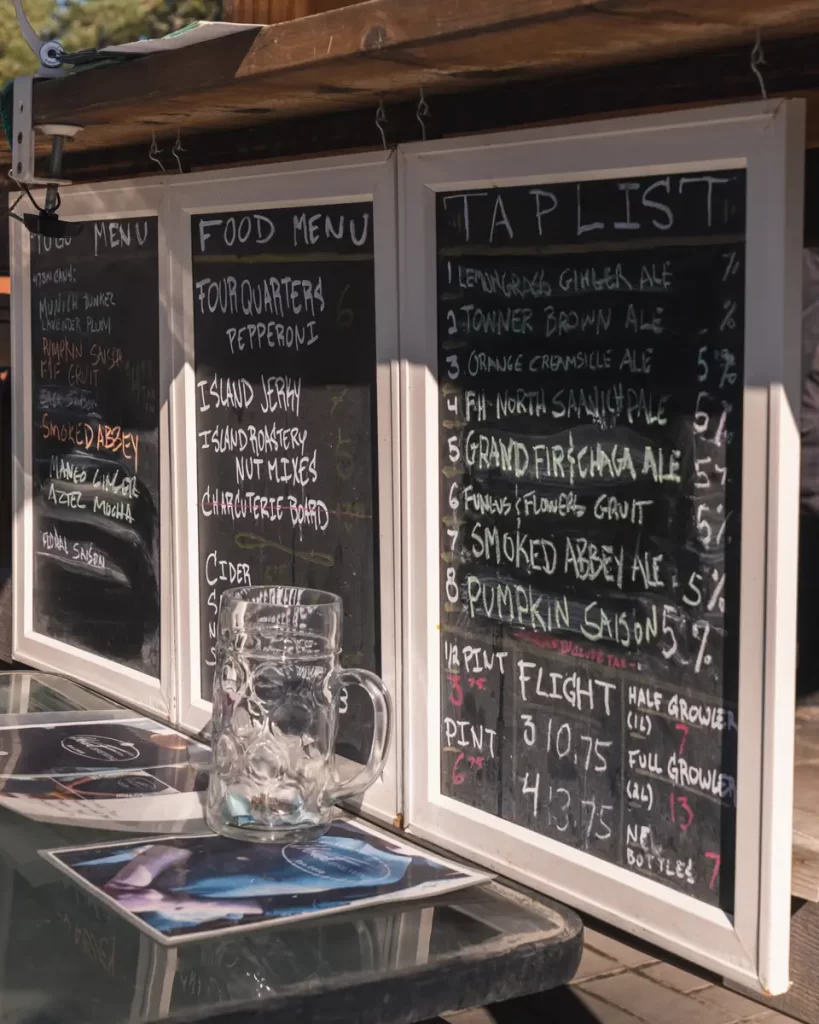 MENU
MUNICH DUNKEL
LAVENDER PLUM
PUMPKIN SAISON
FRUIT
SMOKED ABBEY
MANGO GINGER
AZTEC MOCHA
FLORAL SAISON
FOOD MENU
FOUR QUARTERS
PEPPERONI
ISLAND JERKY
ISLAND ROASTERY
NUT MIXES
CHARCUTERIE BOARD
CIDER
TAP LIST
1 LEMONGRASS GINGER ALE %
2 TOWNER BROWN ALE %
3 ORANGE CREAMSICLE ALE 5%
4 FH-NORTH SAANICH PALE 5%
5 GRAND FIR & CHAGA ALE 5%
6 FUNGUS & FLOWERS GRUIT 5%
7 SMOKED ABBEY ALE 5%
8 PUMPKIN SAISON 5%
INCLUDE TAX
1/2 PINT
3.75
PINT
6.75
FLIGHT
3 10.75
4 13.75
HALF GROWLER
(1L) 7
FULL GROWLER
(2L) 13
NEW
BOTTLES 7